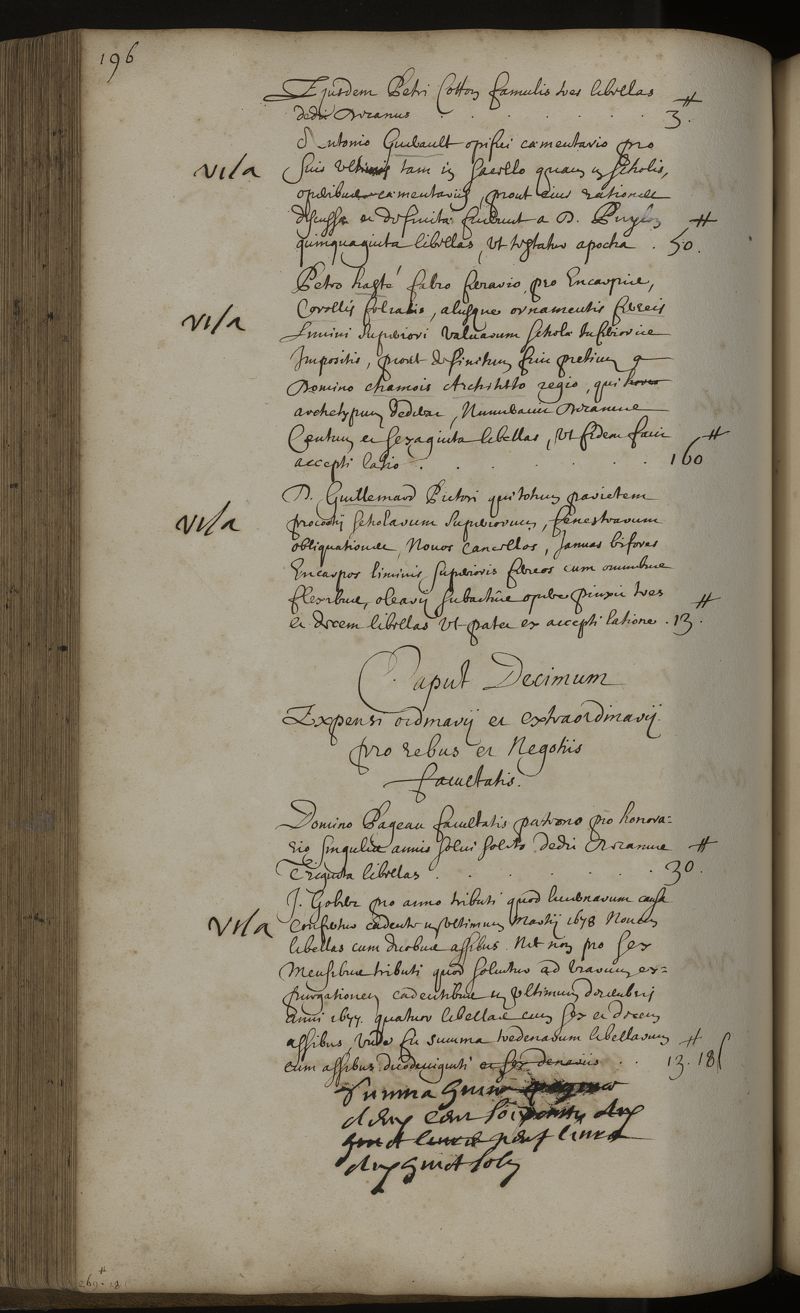 196
Ejusdem Petri Cotton famulis tres libellas
dedit Decanus . . . . . . 3.
Antonio Guibault opifici cæmentario pro
Visa
suis tam in sacello quam in scholis,
operibus cæmentariis, prout eius rationes
discussæ et definitæ fuerunt a D. Puylon
quinquaginta libellas, ut testatur apocha . 50.
Petro hasté fabro ferrario, pro Encarpiis,
Visa
Corollis foliatis, aliisque ornamentis ferreis
Limini superiori valvarum scholæ inferioris
Impositis, prout definitum fuit pretium a
Domino chamois Architecto regio, qui horum
archetypum dederat, Numeravit Decanus
Centum et sexaginta libellas, ut fidem facit
accepti latio . . . . . . 160
D. Guillemard Pictori qui totum parietem
Visa
scholarum superiorum, fenestrarum
obliquationes, Novos Cancellos, Januas bifores
Encarpos liminis superioris ferreos cum omnibus
flexibus, opere pinxit tres
et decem libellas ut patet ex accepti latione . 13.
Caput Decimum
Expensi ordinarij et extraordinarij
pro rebus et Negotiis
facultatis.
Domino Pageau facultatis patrono pro honora=
rio singulis annis solui solito dedit Decanus
Triginta libellas . . . . . . 30.
J. Gohier pro anno tributi quod lucernarum causa
Visa
Confertur cadente in ultimum Martij 1678 Novem
libellas cum duobus assibus. Nec non pro sex
Mensibus tributi quod soluitur ad viarum ex=
purgationem cadentibus in ultimum decembris
anni 1677. quatuor libellas cum sex et decem
assibus, unde fit summa tredecim libellarum
cum assibus duodeviginti et sex denariis . . 13. 18 s
Summa huius paginæ
deux cent soixante
neuf livres
dix huict sols
269. 18